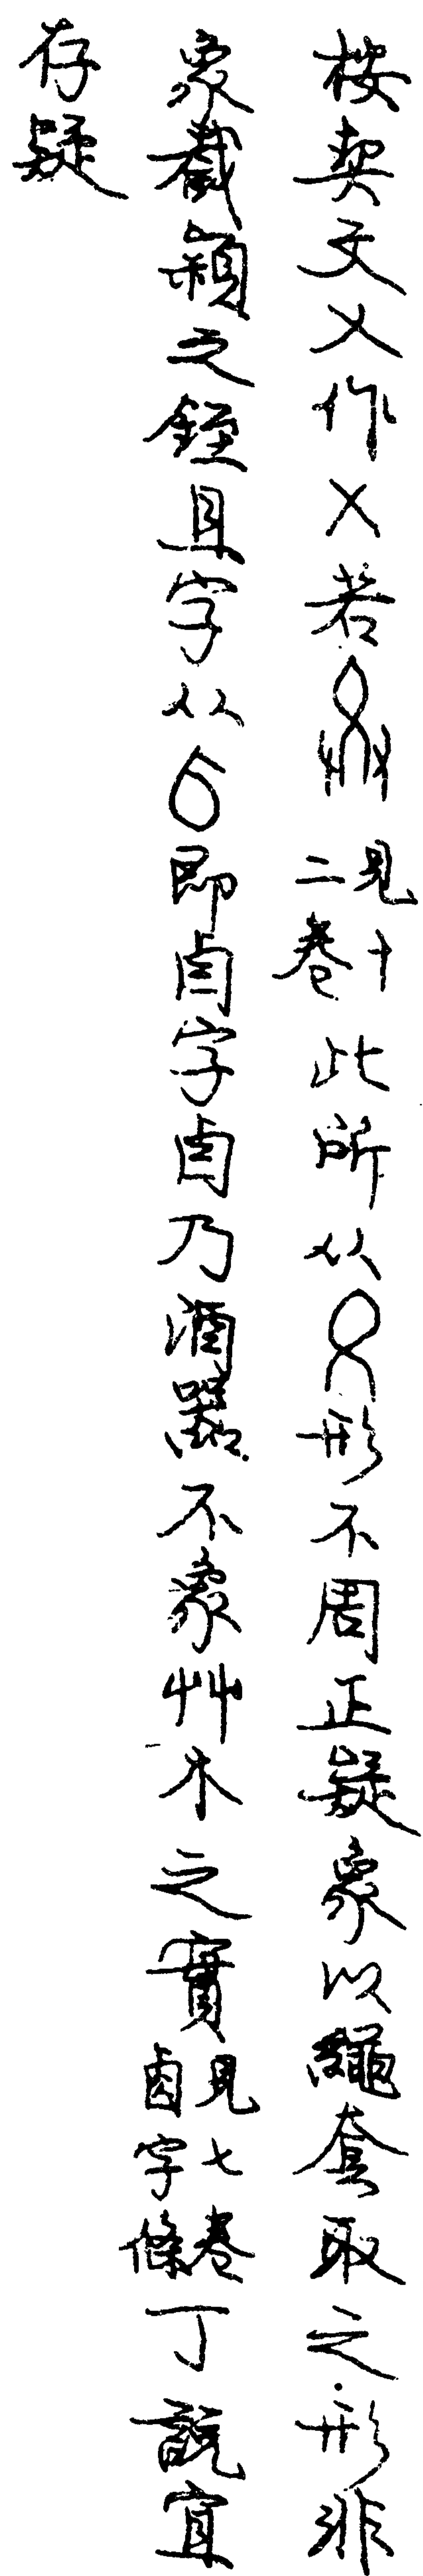 按契文乂作乂若見十二卷此所从形不周正疑象以繩套取之形非
象截穎之銍且字从即卣字卣乃酒器不象艸木之實見七卷卣字條丁說宜
存疑